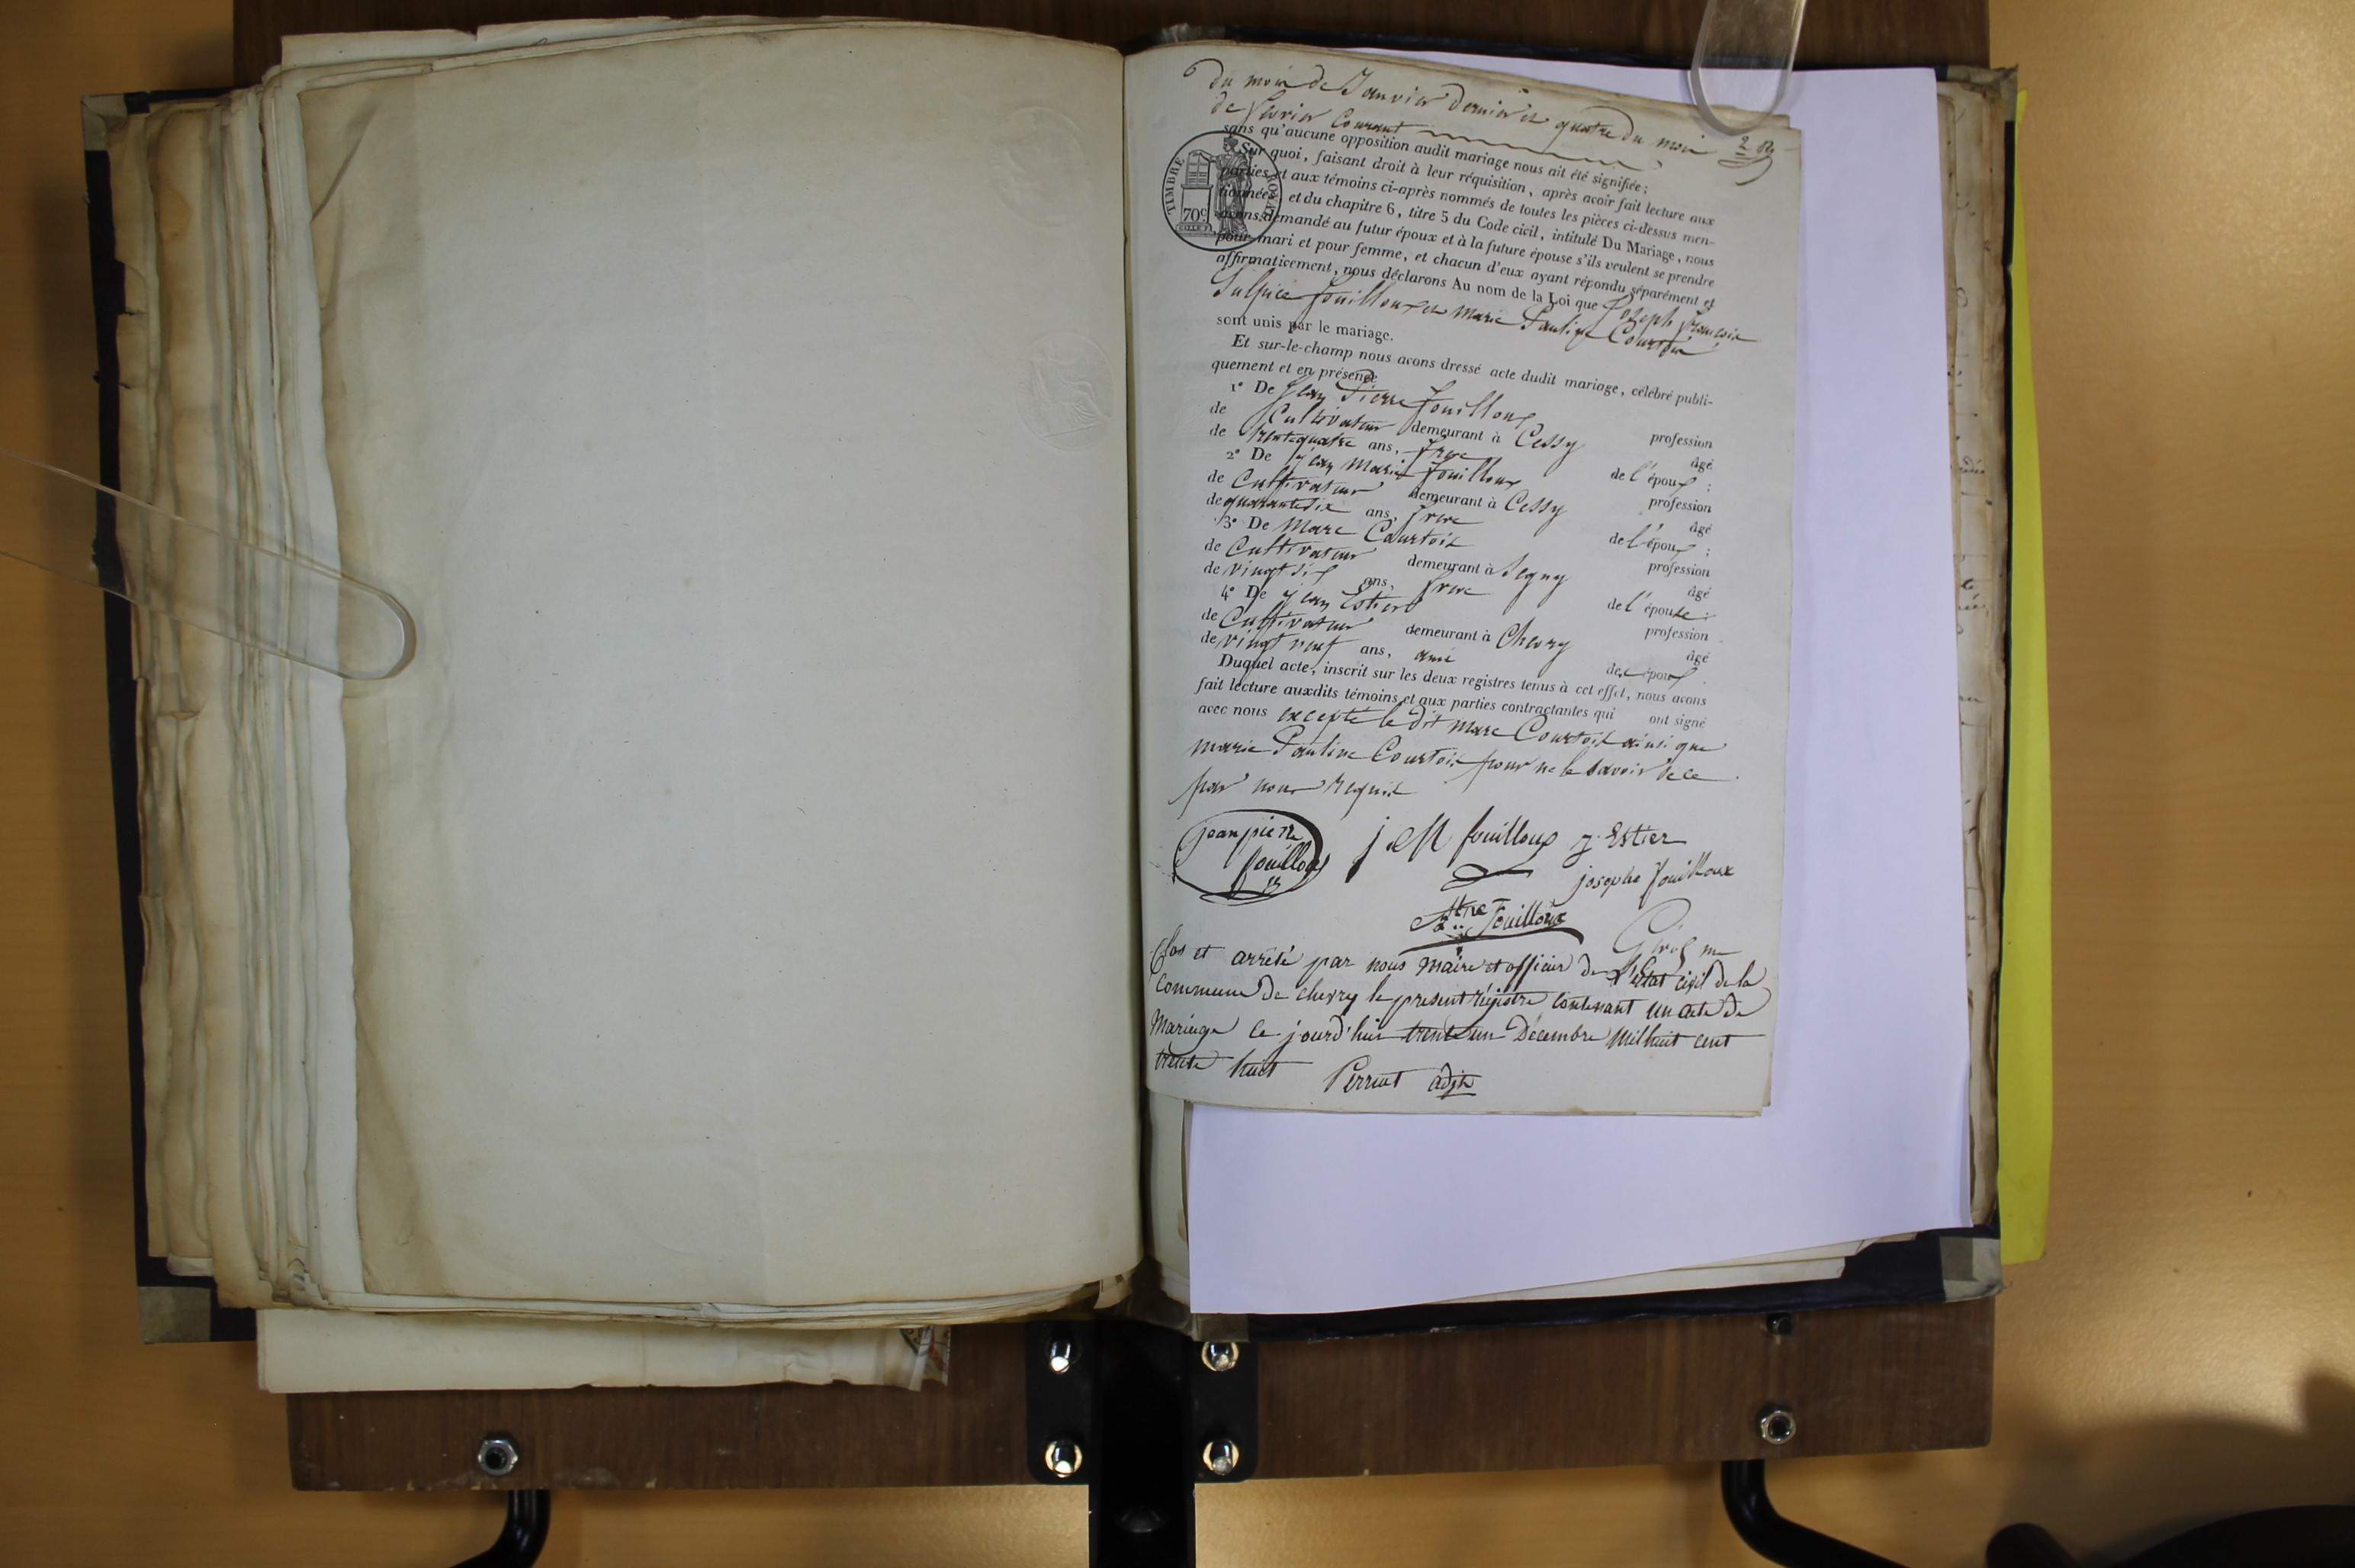 du mois de Janvier dernier et quatre du mois
de fevrier Courant
sans qu'aucune opposition audit mariage nous ait été signifiée ;
Sur quoi, faisant droit à leur réquisition, après avoir fait lecture aux
parties et aux témoins ci-après nommés de toutes les pièces ci-dessus men-
tionnées, et du chapitre 6, titre 5 du Code civil, intitulé Du Mariage, nous
avons demandé au futur époux et à la future épouse s'ils veulent se prendre
pour mari et pour femme, et chacun d'eux ayant répondu séparément et
affirmativement, nous déclarons Au nom de la Loi que Joseph françois
Sulpice fouilloux et Marie Pauline Courtois
sont unis par le mariage.
Et sur-le-champ nous avons dressé acte dudit mariage, célébré publi-
quement et en présence
1° De Jean Pierre fouilloux profession
de Cultivateur demeurant à Cessy âgé
de trentequatre ans, frere de l'époux ;
2° De jean Marie fouilloux profession
de Cultivateur demeurant à Cessy âgé
de quarantesix ans, frere de l'époux ;
3° De Marc Courtois profession
de Cultivateur demeurant à Segny âgé
de vingt six ans, frere de l'épouse ;
4° De jean Estier profession
de Cultivateur demeurant à Chevry âgé
de vingt neuf ans, ami des époux.
Duquel acte, inscrit sur les deux registres tenus à cet effet, nous avons
fait lecture auxdits témoins et aux parties contractantes qui ont signé
avec nous excepté le dit Marc Courtois ainsi que
marie Pauline Courtois pour ne le savoir de ce
par nous requis
jean pierre
fouilloux
j M fouilloux j. Estier
josephe fouilloux
fouilloux
Clos et arrêté par nous Maire et officier de l'Etat civil de la
Commune de chevry le present régistre contenant un acte de
Mariage ce jourd'hui trente un Décembre Mil huit cent
trente huit Perreut adjt
TIMBRE ROYAL
70c